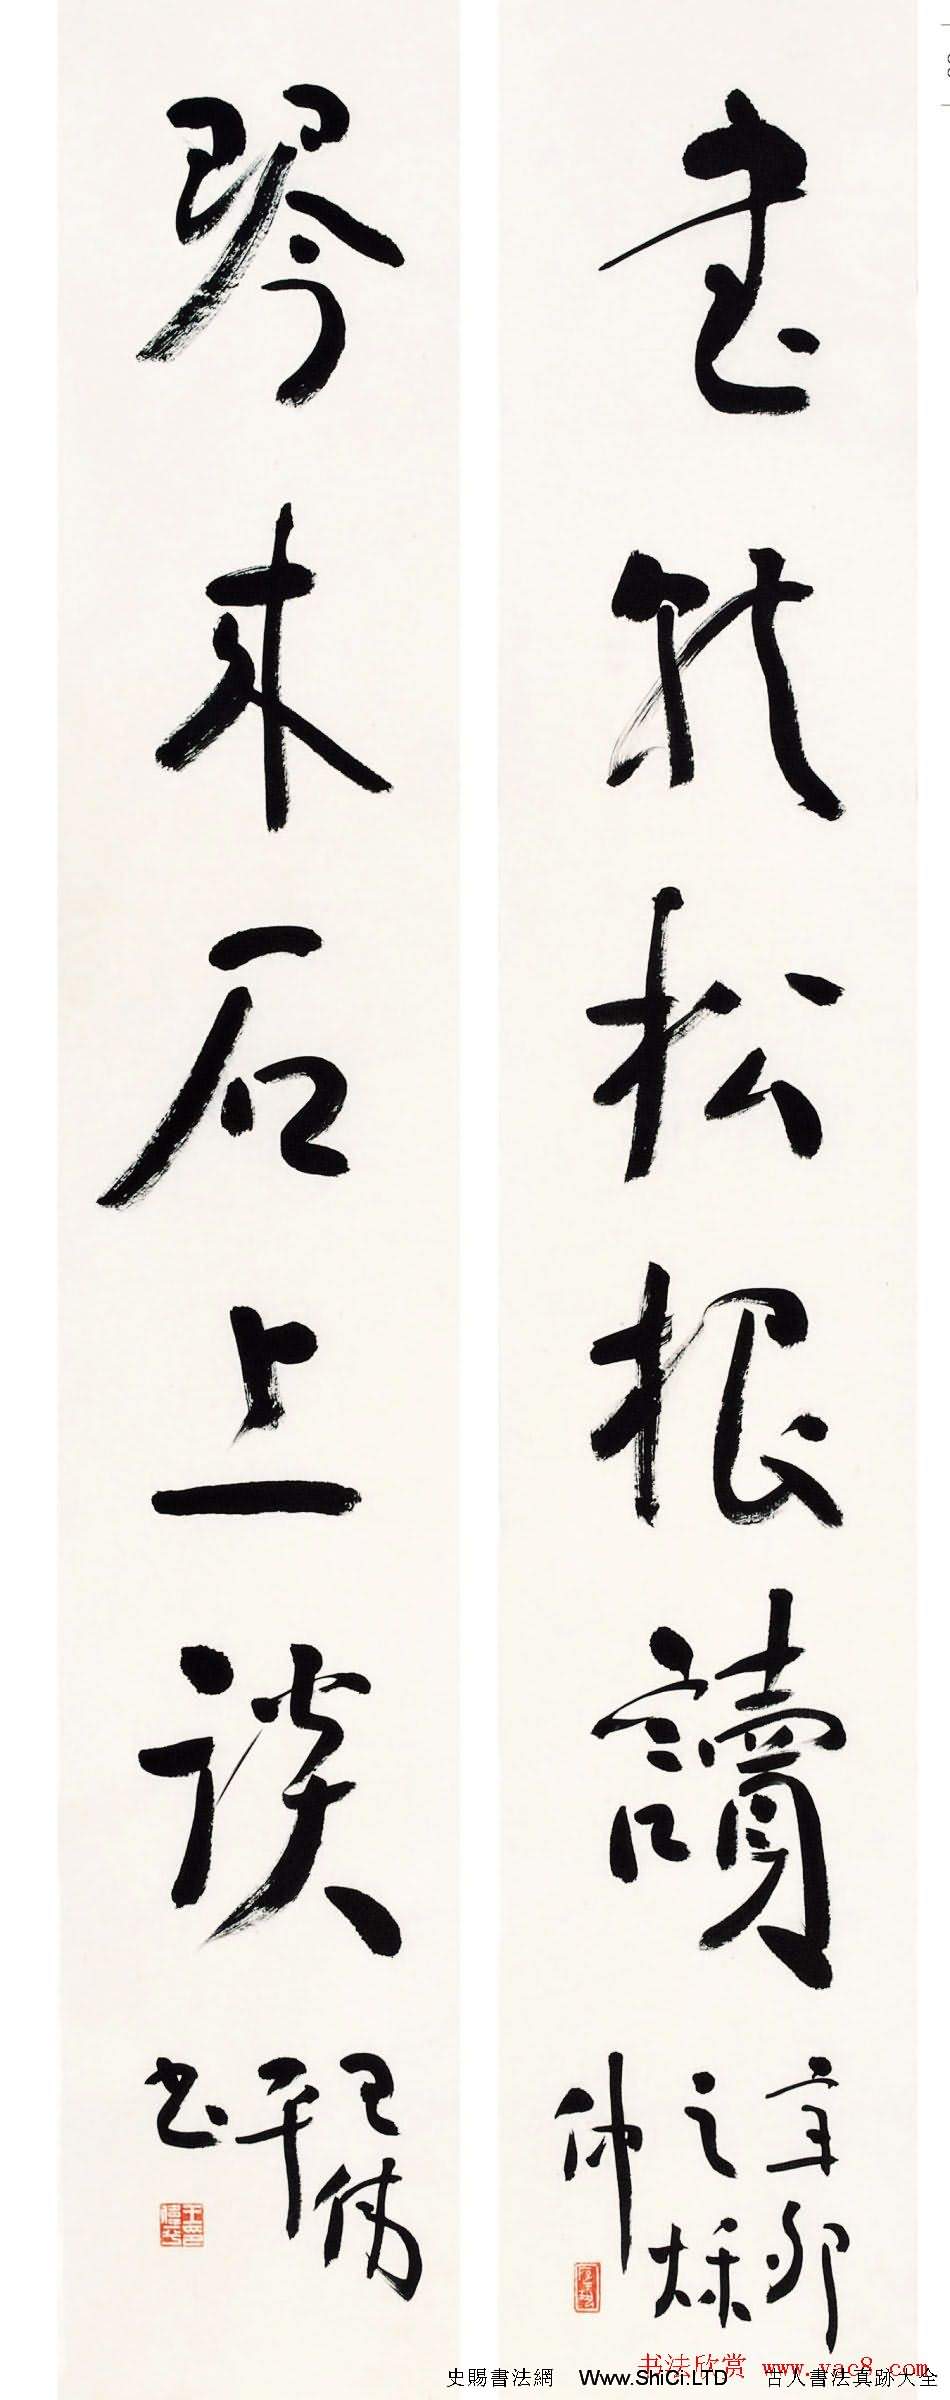 书就松根讀
辛卯
之秋
仲
琴来石上谈
王伟
平
书
书法欣赏 www.yac8.com
史賜書法網 Www.ShiCi.LTD 古人書法真跡大全